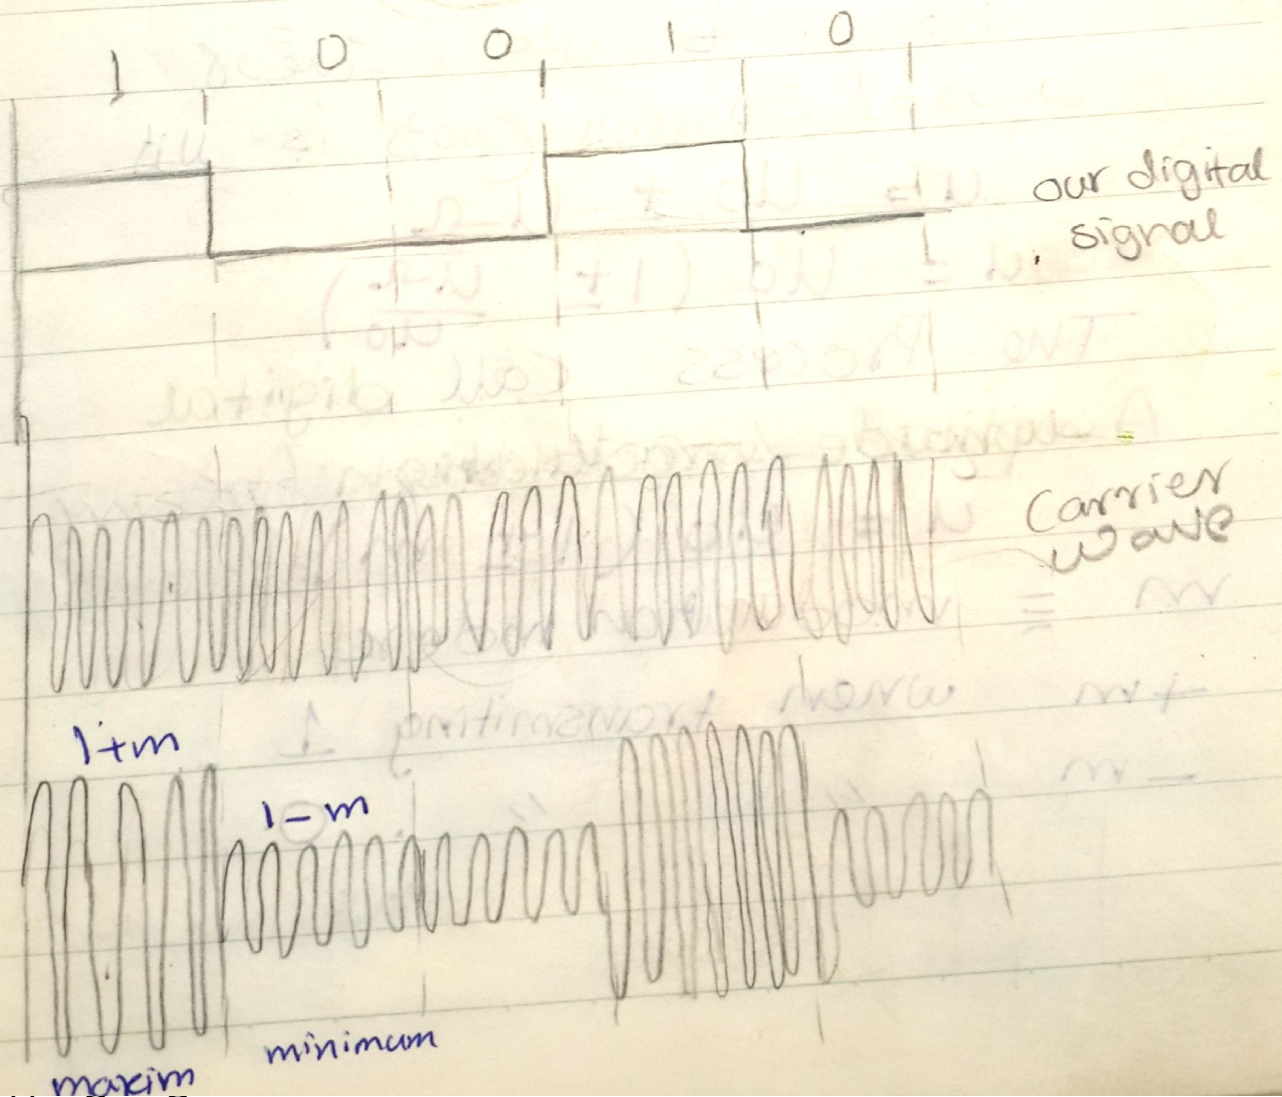 1 0 0 1 0
our digital
signal
Carrier
wave
1+m
1-m
minimum
maxim